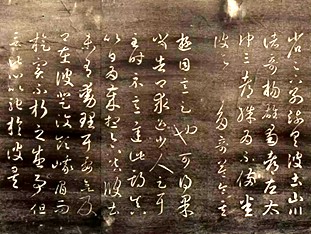 省足下別疏具彼土山川
諸奇揚雄蜀都左太
沖三都殊為不備悉
彼故為多奇益令其
遊目意足也可得果
當告卿求迎少人足耳
至時示意遲此期真
以日為歲想足下鎮彼土
未有動理耳要欲及
卿在彼登汶領峨眉而
旋實不朽之盛事但
言此心以馳於彼矣